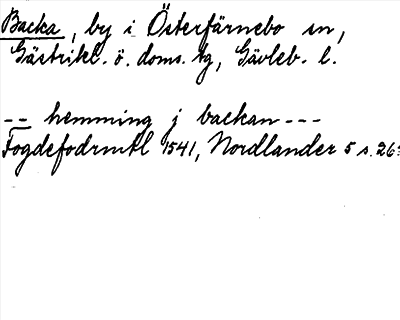 Backa, by i Österfärnebo sn,
Gästrikl. ö. doms. tg, Gävleb. l.
-- hemming j backan ---
Fogdefodrmtl 1541, Nordlander 5 s. 26: